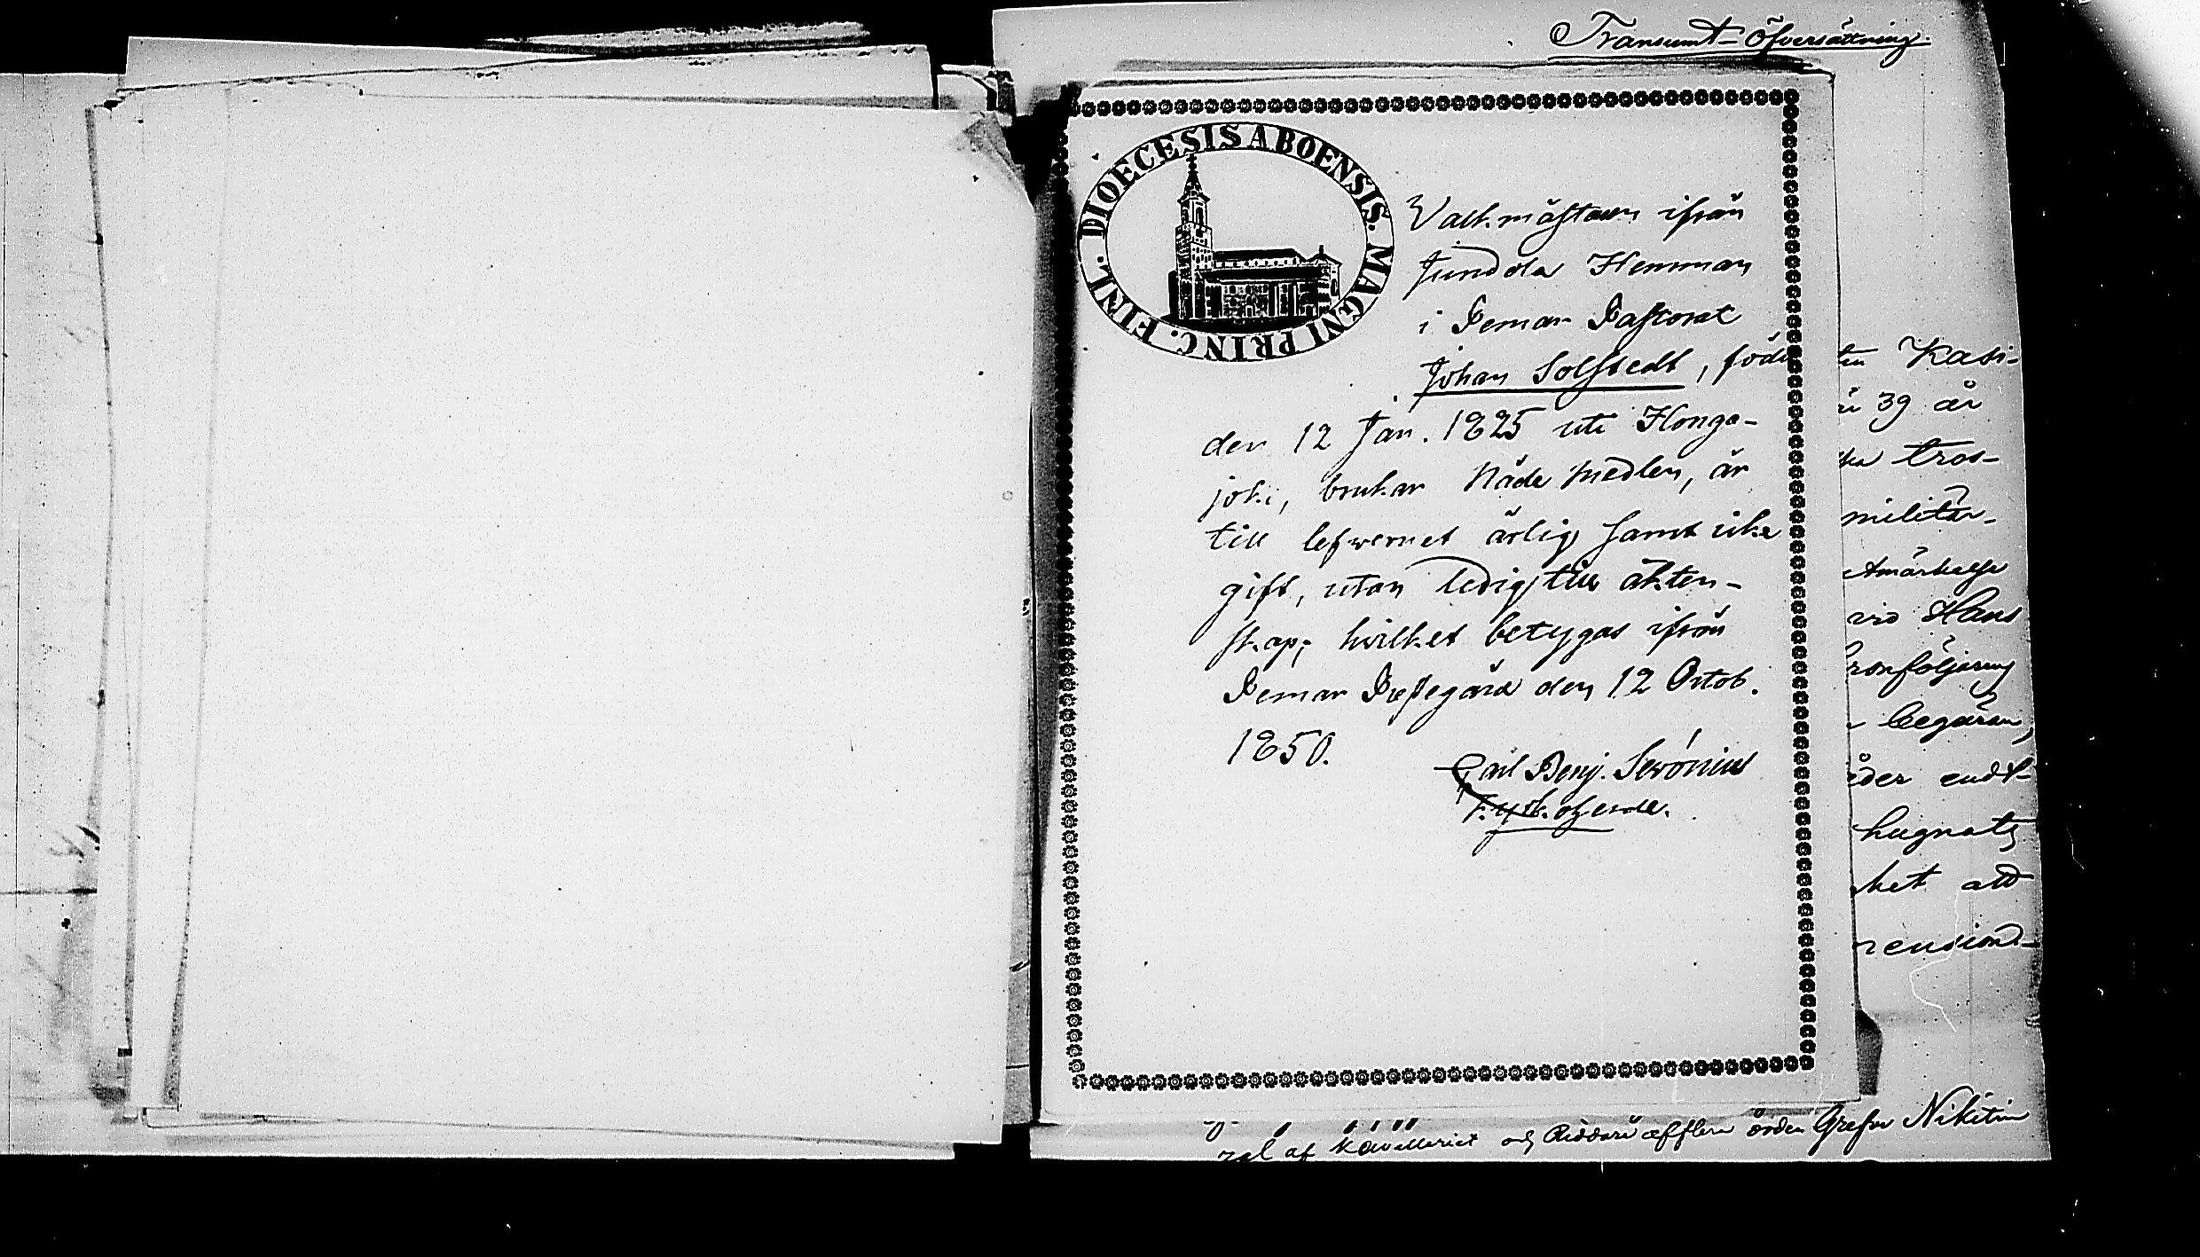 Transumt-öfversättning.
DIOECESIS ABOENSIS. MAGNI PRINC. FINL.
Vaktmästaren ifrån
Jundola Hemman
i Pemar Pastorat
Johan Solstedt, född
den 12 Jan. 1825 uti Honga-
joki, brukar Nådemedlen, är
till lefwernet ärlig samt icke
gift, utan ledig till äkten-
skap; hvilket betygas ifrån
Pemar Prestegård den 12 Octob.
1850.
Carl Benj. Serónius
ten Kasi-
39 år
tros-
militär-
vid Hans
ronföljaren
begäran,
hugnats
het att
pension-
af kavalleriet och Riddare af flere orden Grefve Nikitin